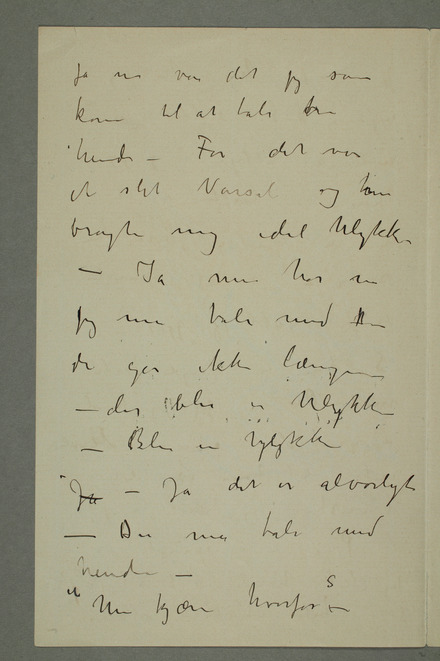 Ja nu var det jeg som
kom til at tale om
hende – For det var
et slet Varsel og hun
bragte mig idel Ulykke
– Ja men hør nu
jeg må tale med
de gør ikke længer
– der blir en Ulykke
– Blir en Ulykke
"Ja – Ja det er alvorligt
– Du må tale med
hende –
"Men kjære hvorfor –